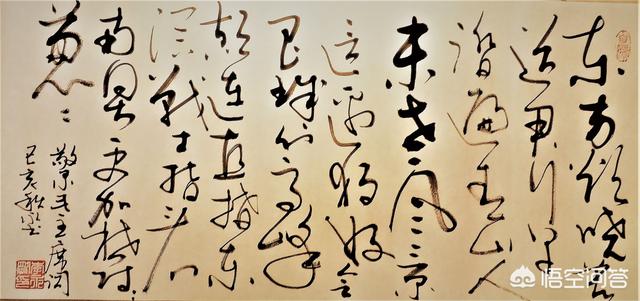 东方欲晓莫
道君行早
踏遍青山人
未老风景
这边独好会
昌城外高峰
颠连直接东
溟战士指看
南粤更加郁郁
葱〻
敬录毛主席词
己亥秋
悟空问答